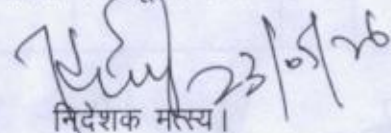 23/05/26
निदेशक मत्स्य।